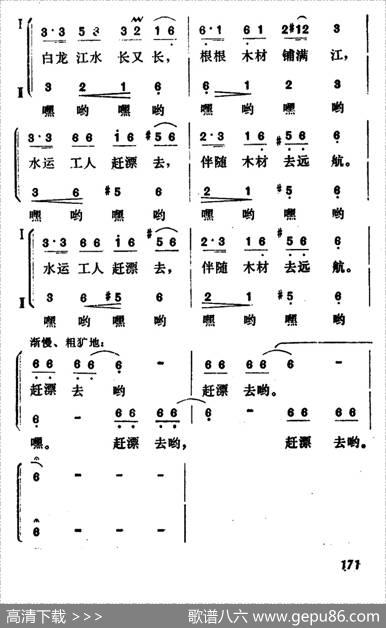 I 3·3 5 3 3 2 1 6 6·1 6 1 2 #1 2 3
白龙江水 长又长, 根根 木材 铺满 江,
II 3 2 1 6 6 1 2 3
嘿 哟 嘿 哟 嘿 哟 嘿 哟
3·3 6 6 1 6 #5 6 2·3 1 6 #5 6 6
水运 工人 赶漂 去, 伴随 木材 去远 航。
3 6 #5 6 2 1 #5 6
嘿 哟 嘿 哟 嘿 哟 嘿 哟
I 3·3 6 6 1 6 #5 6 2·3 1 6 #5 6 6
水运 工人 赶漂 去, 伴随 木材 去远 航。
II 3 6 #5 6 2 1 #5 6
嘿 哟 嘿 哟 嘿 哟 嘿 哟
渐慢、粗犷地:
6 6 6 6 6 - 6 6 6 6 6 -
赶漂 去 哟 赶漂 去哟。
6 - 6 6 6 6 6 - 6 6 6 6
嘿。 赶漂 去哟, 赶漂 去哟。
6 - - -
6 - - -
171
高清下载 >>> 歌谱八六 www.gepu86.com